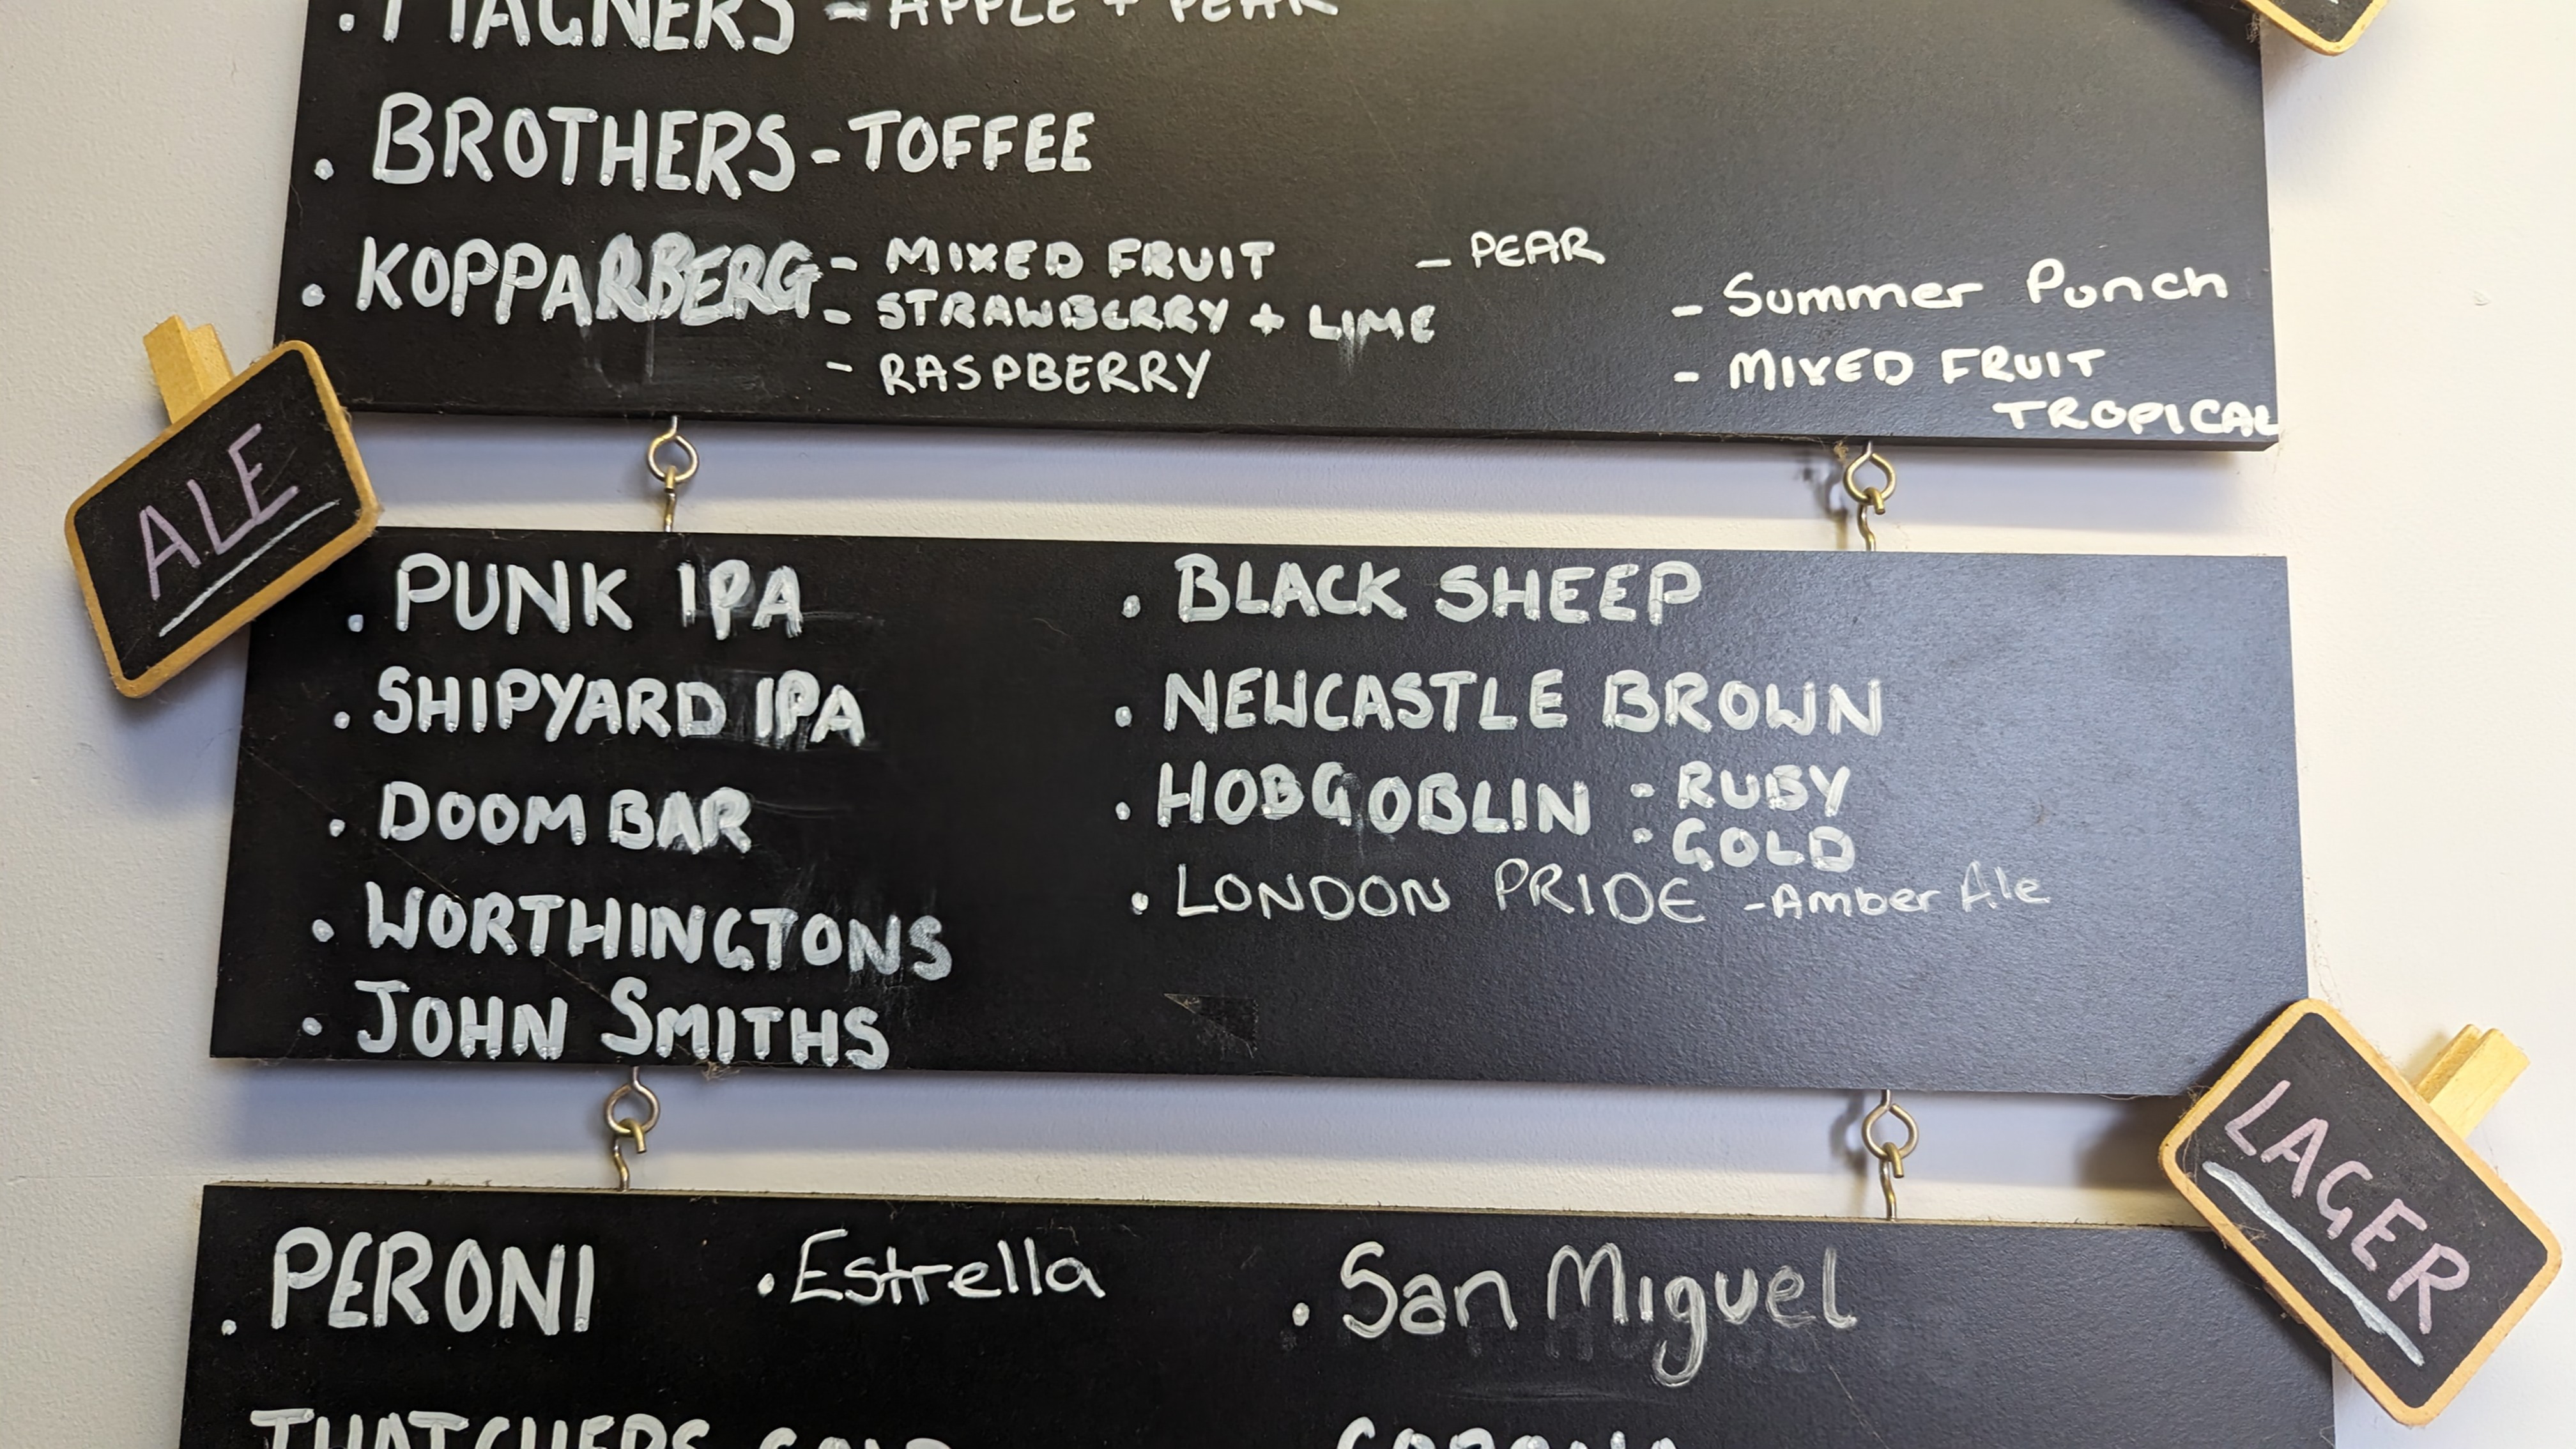 . MAGNERS - APPLE + PEAR
. BROTHERS - TOFFEE
. KOPPARBERG - MIXED FRUIT - PEAR
- STRAWBERRY + LIME - Summer Punch
- RASPBERRY - MIXED FRUIT
TROPICAL
ALE
. PUNK IPA
. SHIPYARD IPA
. DOOM BAR
. WORTHINGTONS
. JOHN SMITHS
. BLACK SHEEP
. NEWCASTLE BROWN
. HOBGOBLIN - RUBY
- GOLD
. LONDON PRIDE - Amber Ale
LAGER
. PERONI . Estrella . San Miguel
THATCHERS GOLD CORONA